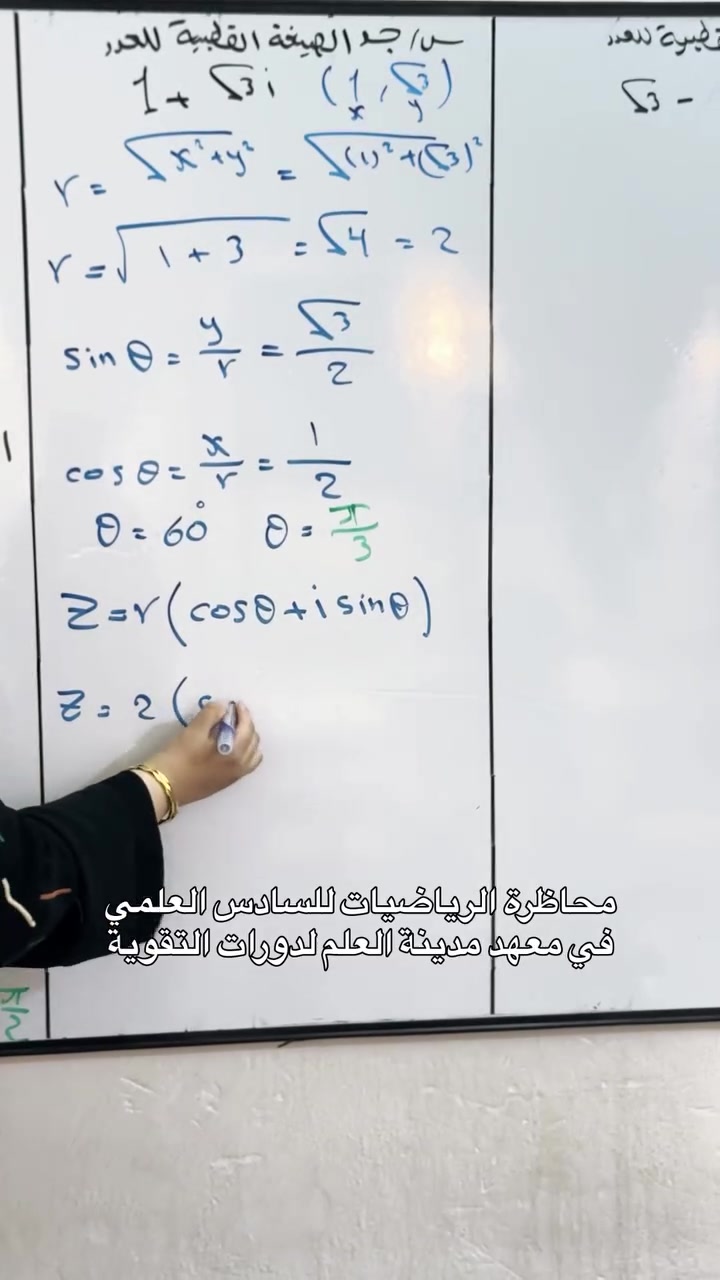 س/ جد الصيغة القطبية للعدد
1 + √3 i (1, √3)
x y
r = √x²+y² = √(1)²+(√3)²
r = √1 + 3 = √4 = 2
sin θ = y/r = √3/2
cos θ = x/r = 1/2
θ = 60° θ = π/3
Z = r (cos θ + i sin θ)
Z = 2 (
قطبية للعدد
√3 -
π/2
محاظرة الرياضيات للسادس العلمي
في معهد مدينة العلم لدورات التقوية